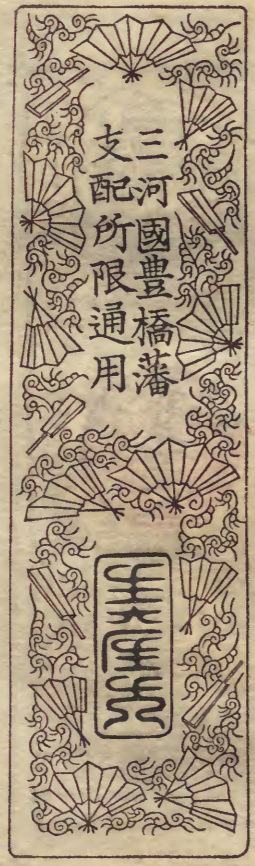 三河國豊橋藩
支配所限通用